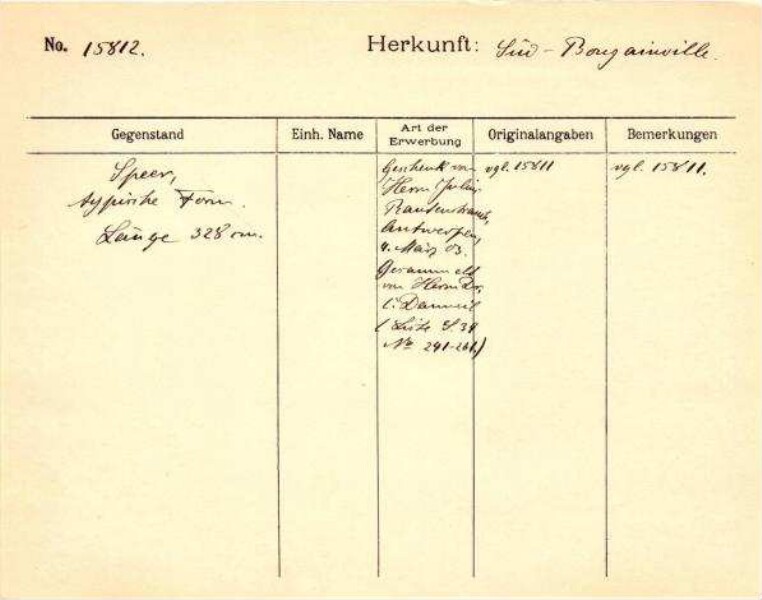 No. 15812.
Herkunft: Süd-Bougainville.
Gegenstand
Einh. Name
Art der Erwerbung
Originalangaben
Bemerkungen
Speer,
typische Form.
Länge 328 cm.
Geschenk von
Herrn
Rautenstrauch,
Antwerpen,
4. März 03.
Gesammelt
von Herrn Dr.
(Liste S. 34
No 241-261.)
vgl. 15811
vgl. 15811.